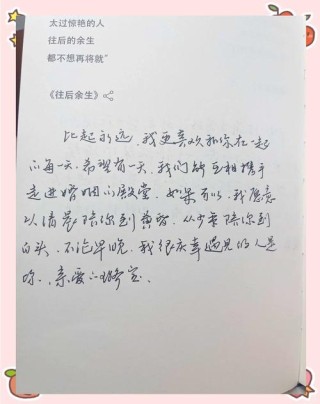 太过惊艳的人
往后的余生
都不想再将就"
《往后余生》
比起永远,我更喜欢和你在一起
的每一天,希望有一天,我们能互相携手
走进婚姻的殿堂,如果可以,我愿意
以清晨陪你到黄昏,从少年陪你到
白头,不论早晚,我很庆幸遇见的人是
你,亲爱的宝